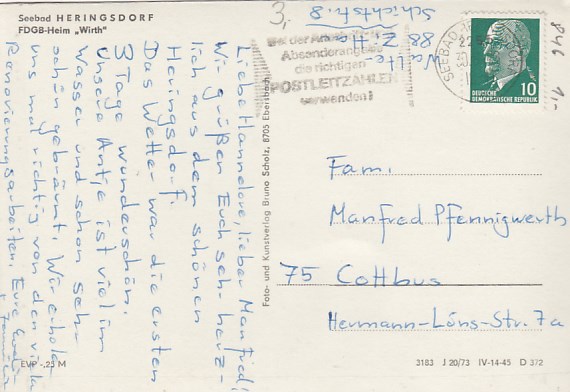 Seebad HERINGSDORF
FDGB-Heim „Wirth"
3,-
88 Z
Schichtstr. 8
Bei der
Absenderangabe
die richtigen
POSTLEITZAHLEN
verwenden!
SEEBAD
10
DEUTSCHE
DEMOKRATISCHE REPUBLIK
1,-
Liebe Hannelore, lieber Manfred!
Wir grüßen Euch sehr herz-
lich aus dem schönen
Heringsdorf.
Das Wetter war die ersten
3 Tage wunderschön.
Unsere Antje ist viel im
Wasser und schon sehr
schön gebräunt. Wir erholen
uns mal richtig von den vielen
Renovierungsarbeiten. Eure
Familie
Foto- und Kunstverlag Bruno Scholz, 8705 Ebersbach
Fam.
Manfred Pfennigwerth
75 Cottbus
Hermann-Löns-Str. 7a
EVP -,25 M
3183 J 20/73 IV-14-45 D 372